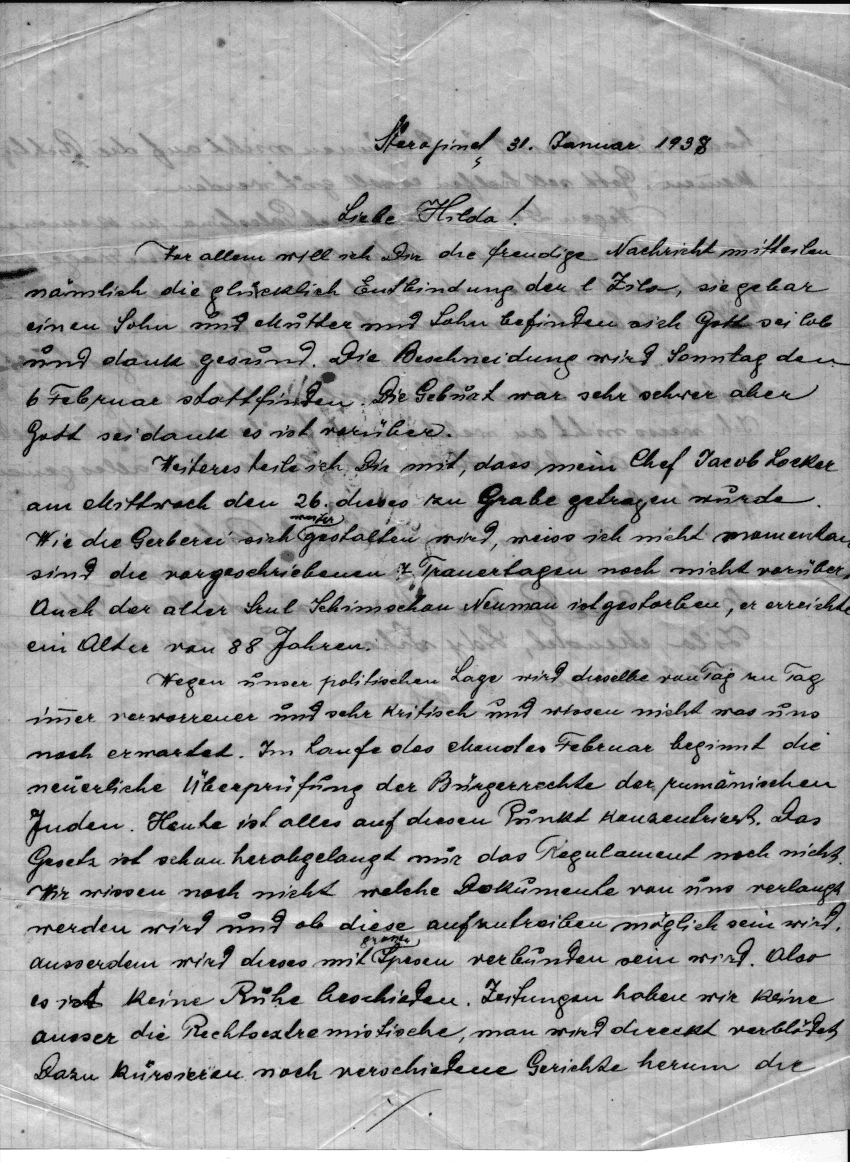 Storojinetz, 31. Januar 1938
Liebe Hilda!
Vor allem will ich Dir die freudige Nachricht mitteilen
nämlich die glücklich Entbindung der l Zila, sie gebar
einen Sohn und Mutter und Sohn befinden sich Gott sei lob
und dank gesund. Die Beschneidung wird Sonntag den
6 Februar stattfinden. Die Geburt war sehr schwer aber
Gott sei dank es ist vorüber.
Weiteres teile ich Dir mit, dass mein Chef Jacob Locker
am Mittwoch den 26. dieses zu Grabe getragen wurde.
Wie die Gerberei sich weiter gestalten wird, weiss ich nicht momentan
sind die vorgeschriebenen 7 Trauertagen noch nicht vorüber.
Auch der alter Srul Schimschon Neuman ist gestorben, er erreichte
ein Alter von 88 Jahren.
Wegen unser politischen Lage wird dieselbe von Tag zu Tag
immer verworrener und sehr kritisch und wissen nicht was uns
noch erwartet. Im Laufe des Monates Februar beginnt die
neuerliche Überprüfung der Bürgerrechte der rumänischen
Juden. Heute ist alles auf diesen Punkt konzentriert. Das
Gesetz ist schon herabgelangt nur das Regulament noch nicht.
Wir wissen noch nicht welche Dokumente von uns verlangt
werden wird und ob diese aufzutreiben möglich sein wird,
ausserdem wird dieses mit grosse Spesen verbunden sein wird. Also
es ist keine Ruhe beschieden. Zeitungen haben wir keine
ausser die Rechtsextremistische, man wird direckt verblödet
Dazu kursieren noch verschiedene Gerichte herum die
./.